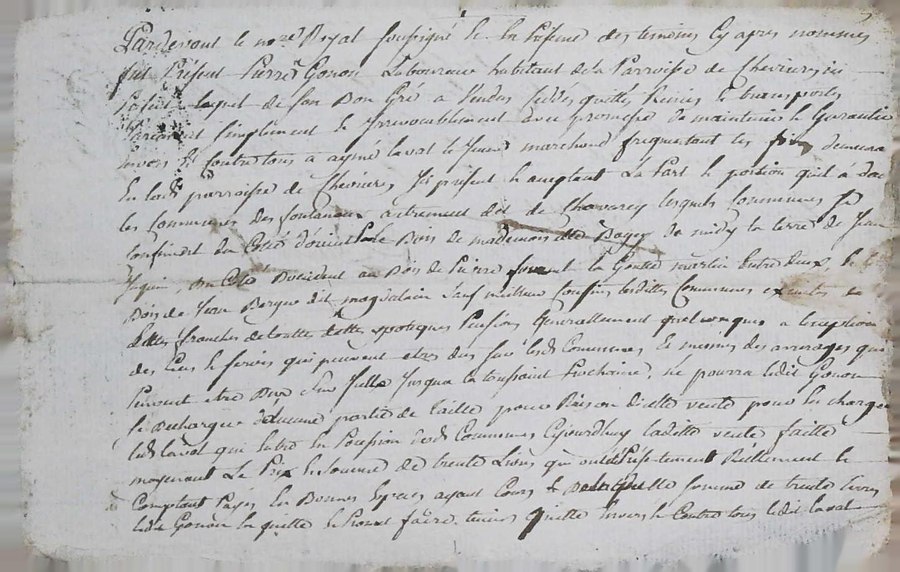 Pardevant le no.re Royal soussigné Et En presence des temoins Cy apres nommés
fut Présent Pierre Gonon Laboureur habitant de la Parroisse de Chevrieres
lequel de Son Bon Gré a Vendu cedde quitte Remis Et transporte
simplement Et Irrevocablement avec promesse de maintenir Et Garantie
Envers Et Contre tous a aymé laval le Jeune marchand
En lad parroisse de Chevrieres, Jci présent Et acceptant La Part Et portion quil a dans
les Communes des fontanaux autrement dit de Chavarey lesquels Communes Se
Confinent du Coté d'orient le Bois de mademoiselle Boyer de midy la terre de Jean
du Coté Doccident au Bois de Pierre la Goutte martin Entre deux, Et
Bois de Jean Bergue dit magdalain Sauf meilleurs Confins lesdittes Communes Exemptes
Et franches de touttes dettes ypoteques Pensions Generallement quelconques a lexception
des Cens Et servis qui peuvent etre dus sur lesd Communes Et mesmes des arrerages qui
Peuvent etre Dus Jusqua la toussaint Prochaine, ne pourra ledit Gonon
Se decharger daucune partie de taille pour Raison de laditte vente pour En charger
led laval qui Entre En Possession desd Communes Cejourdhuy laditte vente faitte
moyenant Le Prix Et Somme de trente Livres qui ont été Présentement Réellement Et
Comptant Payés En Bonnes Especes ayant Cours Et De laquelle Somme de trente livres
led Gonon En quitte Et Promet faire tenir Quitte Envers Et Contre tous ledit laval